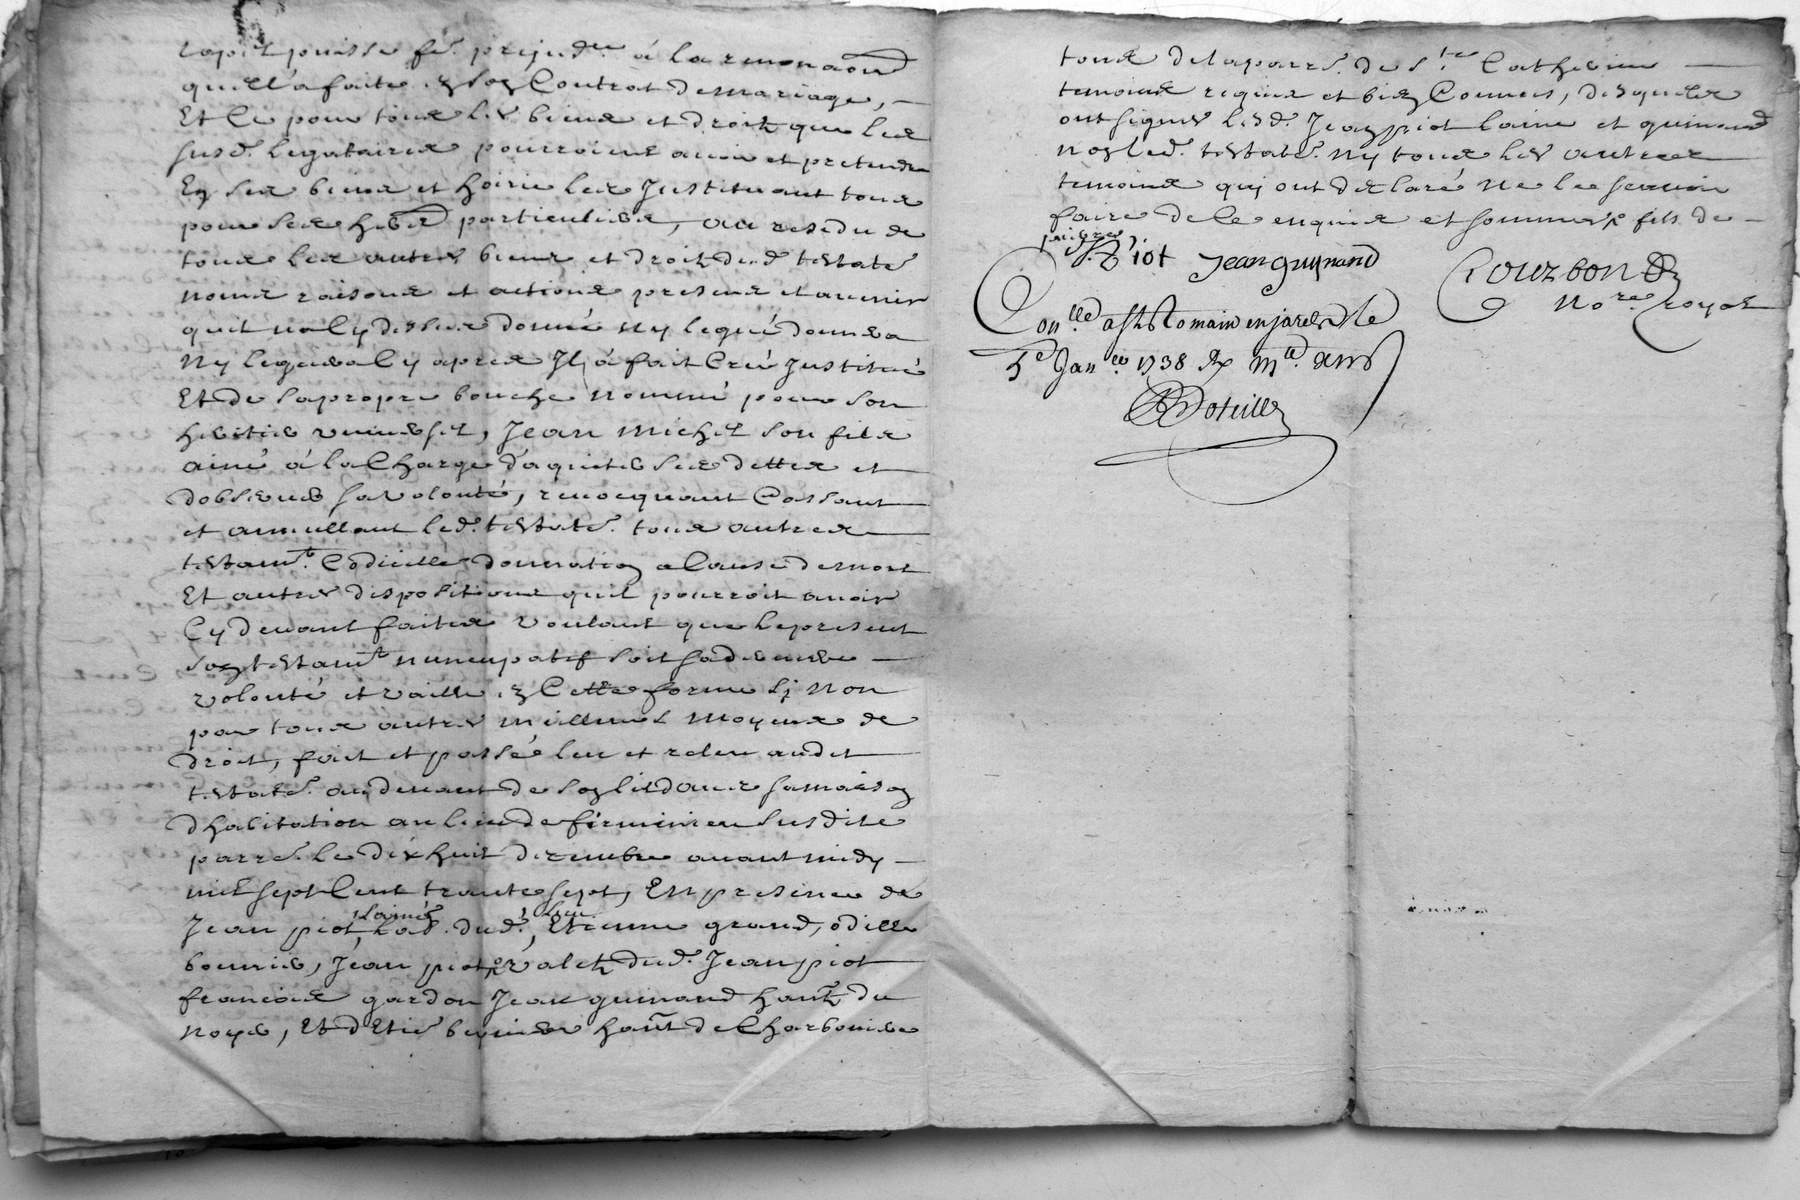 puisse fe. prejud.ce á la renonaõn
quell'a faite en son Contrat de mariage,
Et Ce pour tous les biens et droitz que les
susd. legataires pourroient avoir et pretendre
En ses biens et hoirie les Jnstituant tous
pour ses herrs particuliers, au residu de
tous les autres biens et droitz dud. testatr
noms raisons et actions presens et avenir
quil na Cy dessus donné ny legué donnera
Ny leguera Cy apres Jl á fait Creé Jnstitué
Et de sa propre bouche nommé pour son
heritier universel, Jean Michel son fils
ainé á la Charge daquiter ses dettes et
dobserver sa volonté, revocquant Cassant
et annullant led. testatr. tous autres
testamt. Codicille donnation a Cause de mort
Et autres dispositions quil pourroit avoir
Cy devant faites voulant que le present
son testamt nuncupatif soit sa derniere
volonté et vaille en Cette forme sj Non
par tous autres meilleurs moyens de
droit, fait et passé leu et releu audit
testatr. au devant de son lit dans sa maison
dhabitation au lieu de firminieu susdite
parrse. le dixhuit decembre avant midy
mil sept Cent trante sept, En presence de
Jean piot laine hab. dud. lieu, Etienne grand, odille
bouvier, Jean piot valet dud. Jean piot
francois gardon Jean guinand hantz du
noyer, Et d'Etie hant de Charbouiere
tous de la parrse. de Ste Catherine
temoins requis et bien Connus, desquels
ont signes lesd. Jean piot laine et guinand
non led. testatr. Ny tous les autres
temoins quj ont declaré ne le scavoir
faire de Ce enquis et sommes fils de
J. Piot Jean guynand Courbon
No.re royal
Con.lle a St Romain en jarest le
5e Janer 1738